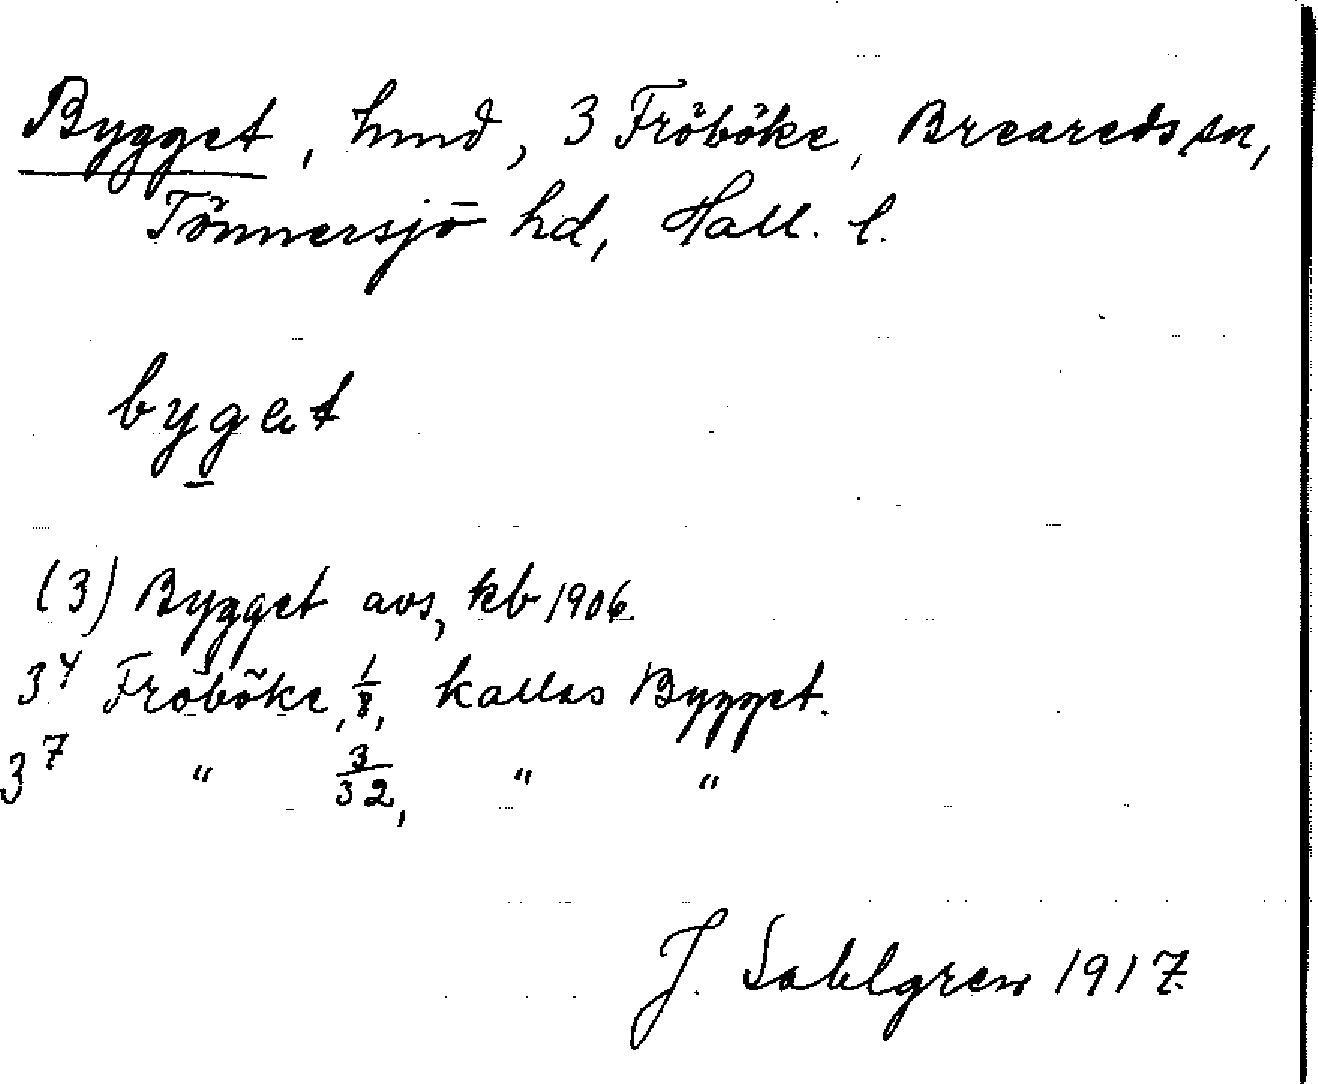 Bygget, hmd, 3 Fröböke, Breareds sn,
Tönnersjö hd, Hall. l.
bygat
(3) Bygget avs, kb 1906.
3⁴ Fröböke, 1/8, kallas Bygget.
3⁷ " 3/32, " "
J. Sahlgren 1917.